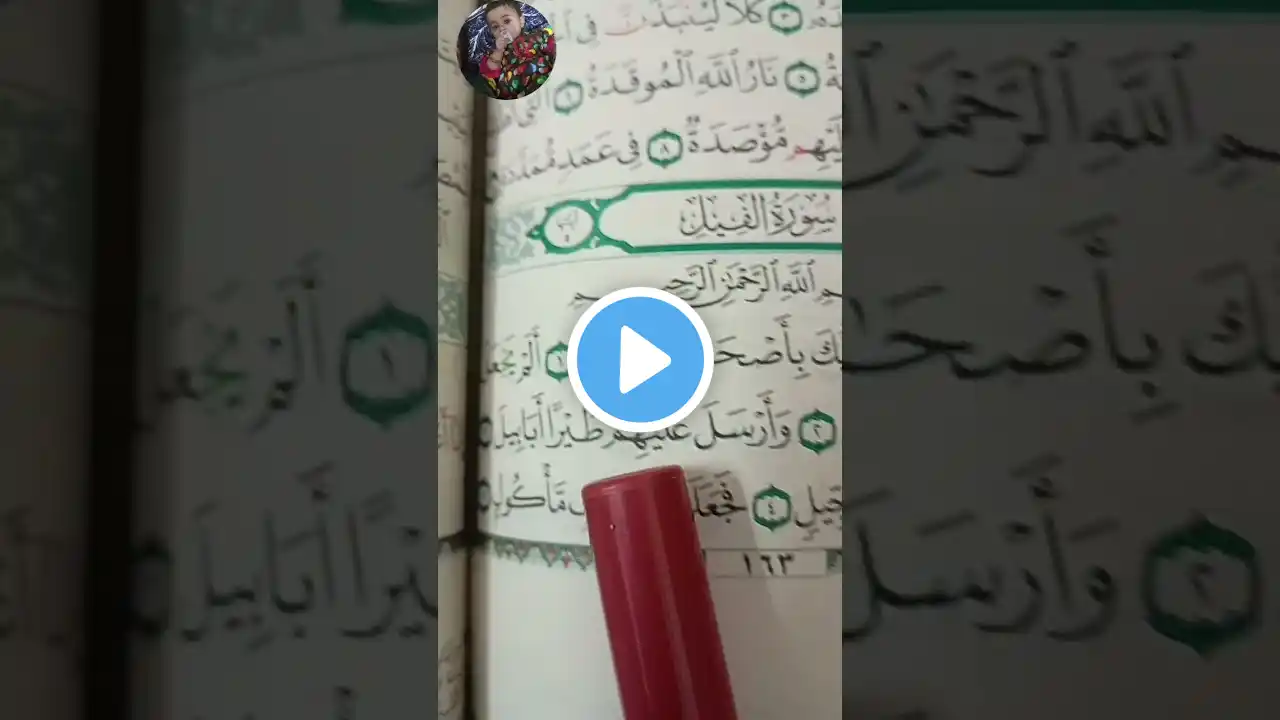 ٣ كَلَّا لَيُنۢبَذَنَّ فِى
٥ نَارُ ٱللَّهِ ٱلْمُوقَدَةُ ٦ ٱلَّتِى
مُّؤْصَدَةٌ ٨ فِى عَمَدٍ مُّمَدَّدَةٍ
سُورَةُ الْفِيلِ
ٱللَّهِ ٱلرَّحْمَٰنِ ٱلرَّحِيمِ
بِأَصْحَا ١ أَلَمْ يَجْعَلْ
٢ وَأَرْسَلَ عَلَيْهِمْ طَيْرًا أَبَابِيلَ
ـجِّيلٍ ٤ فَجَعَلَـ مَّأْكُولٍ
١٦٣